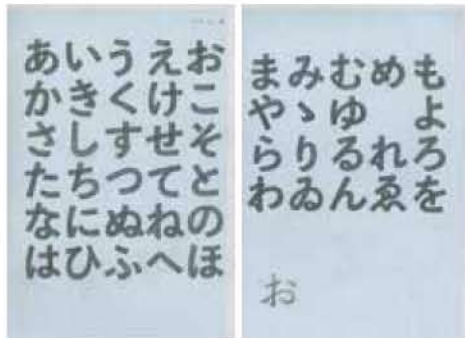 あいうえお
かきくけこ
さしすせそ
たちつてと
なにぬねの
はひふへほ
まみむめも
やゝゆ よ
らりるれろ
わゐんゑを
お